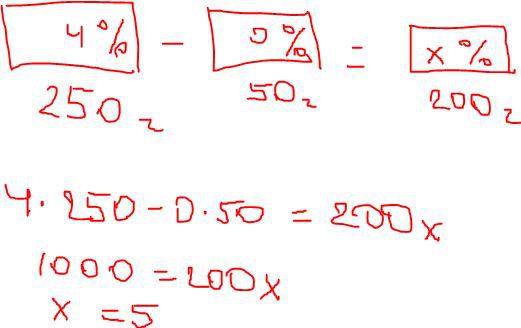 4% - 0% = x%
250г 50г 200г
4 · 250 - 0 · 50 = 200x
1000 = 200x
x = 5